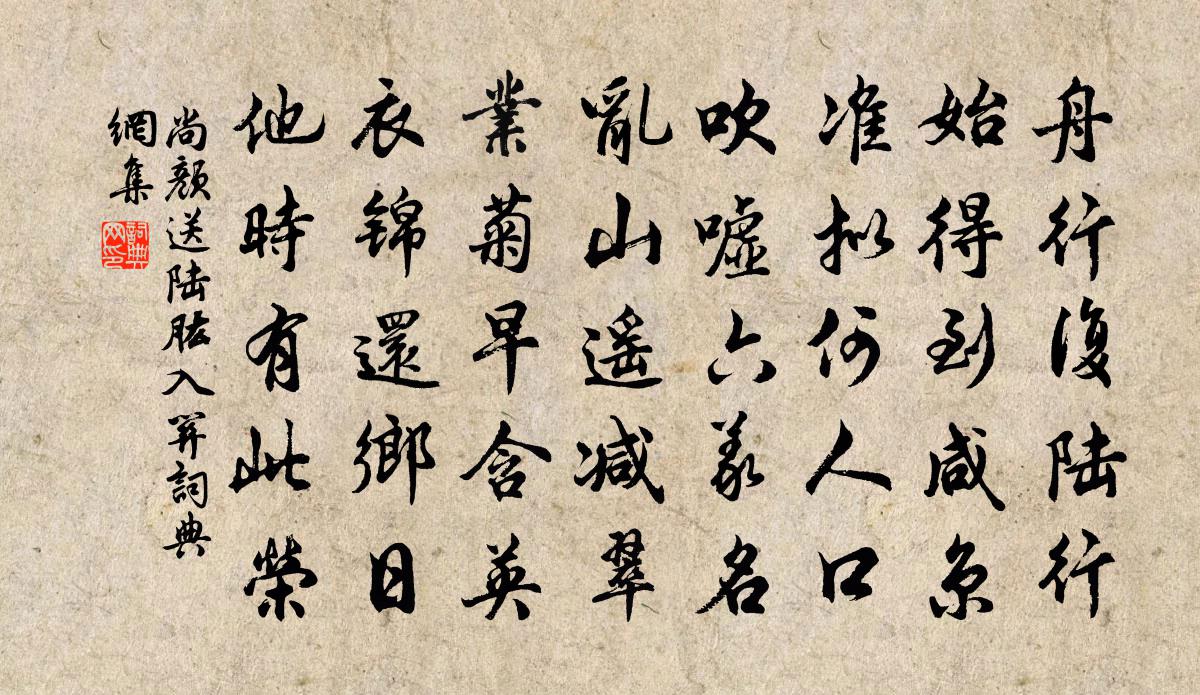 舟行復陆行
始得到咸京
准拟何人口
吹嘘六義名
亂山遥减翠
業菊早含英
衣锦還鄉日
他時有此榮
尚颜送陆肱入
詞典
網集
詞典
网印